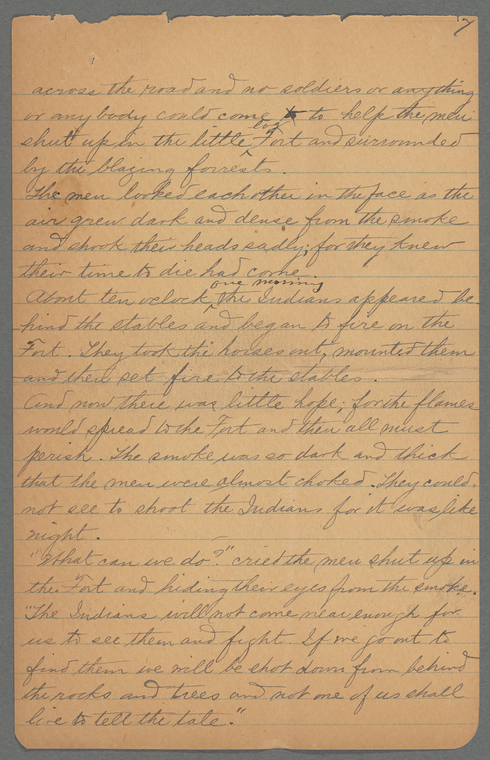 7
across the road and no soldiers or anything
or any body could come to help the men
shut up in the little log Fort and surrounded
by the blazing forrests.
The men looked each other in the face as the
air grew dark and dense from the smoke
and shook their heads sadly; for they knew
their time to die had come.
one morning
About ten oclock, the Indians appeared be-
hind the stables and began to fire on the
Fort. They took the horses out, mounted them
and then set fire to the stables.
And now there was little hope; for the flames
would spread to the Fort and then all must
perish. The smoke was so dark and thick
that the men were almost choked. They could
not see to shoot the Indians for it was like
night.
"What can we do?" cried the men shut up in
the Fort and hiding their eyes from the smoke.
"The Indians will not come near enough for
us to see them and fight. If we go out to
find them we will be shot down from behind
the rocks and trees and not one of us shall
live to tell the tale."